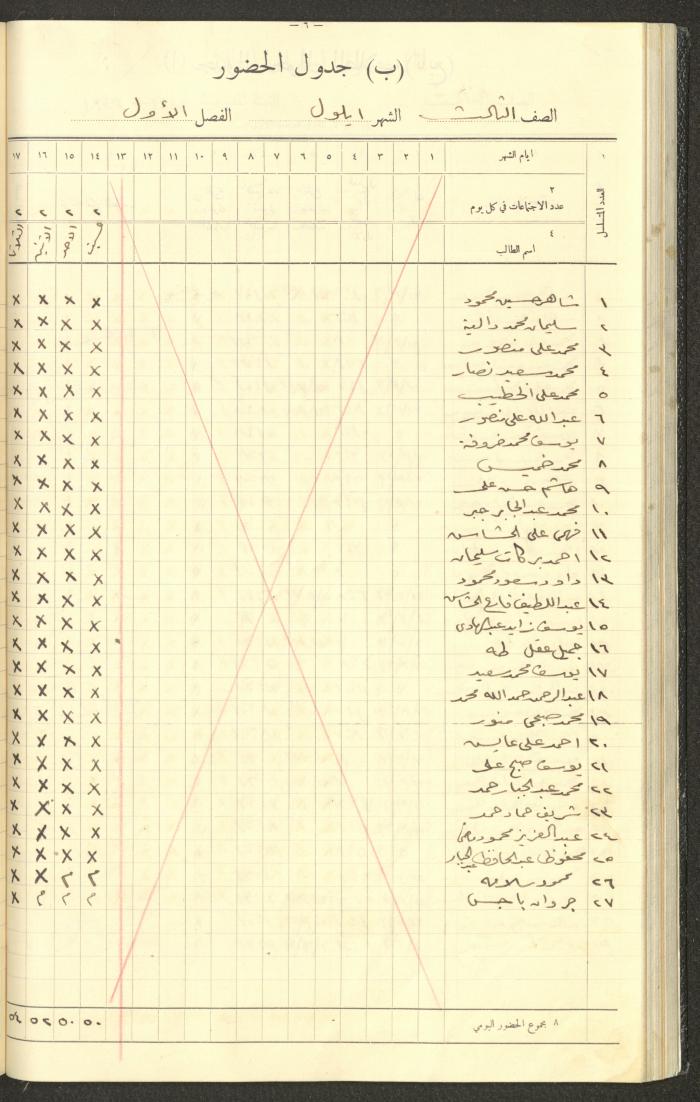 — ٦ —
(ب) جدول الحضور
الصف الثالث الشهر ايلول الفصل الأول
١ العدد المتسلسل
ايام الشهر ١ ٢ ٣ ٤ ٥ ٦ ٧ ٨ ٩ ١٠ ١١ ١٢ ١٣ ١٤ ١٥ ١٦ ١٧
٢
عدد الاجتماعات في كل يوم ٢ ٢ ٢ ٢
٤
اسم الطالب السبت الاحد الاثنين الثلاثا
١ شاهر حسين محمود x x x x
٢ سليمان محمد دالية x x x x
٣ محمد علي منصور x x x x
٤ محمد سعيد نصار x x x x
٥ محمد علي الخطيب x x x x
٦ عبد الله علي منصور x x x x
٧ يوسف محمد خروفة x x x x
٨ محمد خميس x x x x
٩ هاشم حسن علي x x x x
١٠ محمد عبد الجابر جبر x x x x
١١ فهمي علي x x x x
١٢ احمد بركات سليمان x x x x
١٣ داود سعود محمود x x x x
١٤ عبد اللطيف x x x x
١٥ يوسف زايد عبد الهادي x x x x
١٦ جميل عقل طه x x x x
١٧ يوسف محمد سعيد x x x x
١٨ عبد الرحمن حمد الله محمد x x x x
١٩ محمد صبحي منور x x x x
٢٠ احمد علي عايس x x x x
٢١ يوسف صبح علي x x x x
٢٢ محمد عبد الجبار حمد x x x x
٢٣ شريف حماد حمد x x x x
٢٤ عبد العزيز محمود x x x x
٢٥ محفوظ عبد الحافظ عبد الجبار x x x x
٢٦ محمود سلامه م م x x
٢٧ جروان باجس م م م x
٨ مجموع الحضور اليومي ٥٠ ٥٠ ٥٢ ٥٤